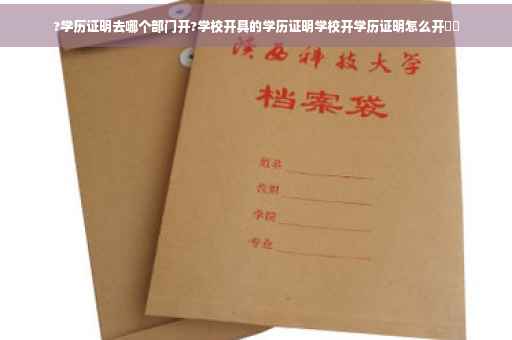 ?学历证明去哪个部门开?学校开具的学历证明学校开学历证明怎么开□□
陕西科技大学
档案袋
姓名
学院
专业